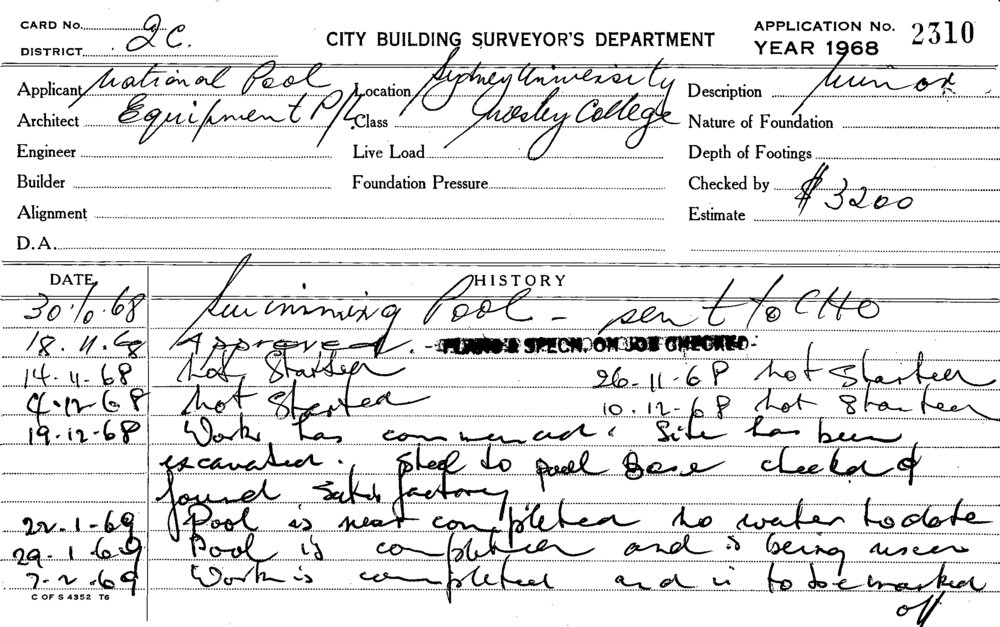 CARD No. 2C. CITY BUILDING SURVEYOR'S DEPARTMENT APPLICATION No. 2310
DISTRICT YEAR 1968
Applicant National Pool Location Sydney University Description Minor
Architect Equipment P/L. Class Wesley College Nature of Foundation
Engineer Live Load Depth of Footings
Builder Foundation Pressure Checked by
Alignment Estimate $3200
D.A.
DATE HISTORY
30/ 68 Swimming Pool - sent to CHO
18.11.68 Approved. - PLANS & SPECN. ON JOB CHECKED
14-11-68 Not Started 26-11-68 Not Started
4-12-68 Not Started 10.12-68 Not Started
19-12-68 Work has commenced. Site has been
excavated. Steel to pool base checked &
found satisfactory
22-1-69 Pool is near completed no water to date
29-1-69 Pool is completed and is being used
7-2-69 Work is completed and is to be marked
off
C OF S 4352 T6